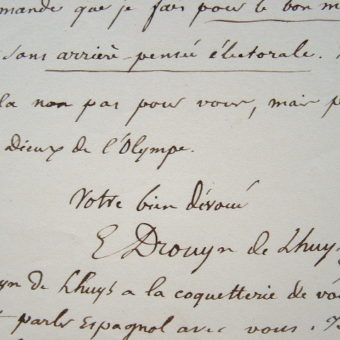 mande que je fais pour le bon m
sans arrière pensée électorale.
la non pas pour vous, mais p
dieux de l'Olympe.
Votre bien dévoué
E Drouyn de Lhuys
yn de Lhuys a la coquetterie de vo
parler Espagnol avec vous.